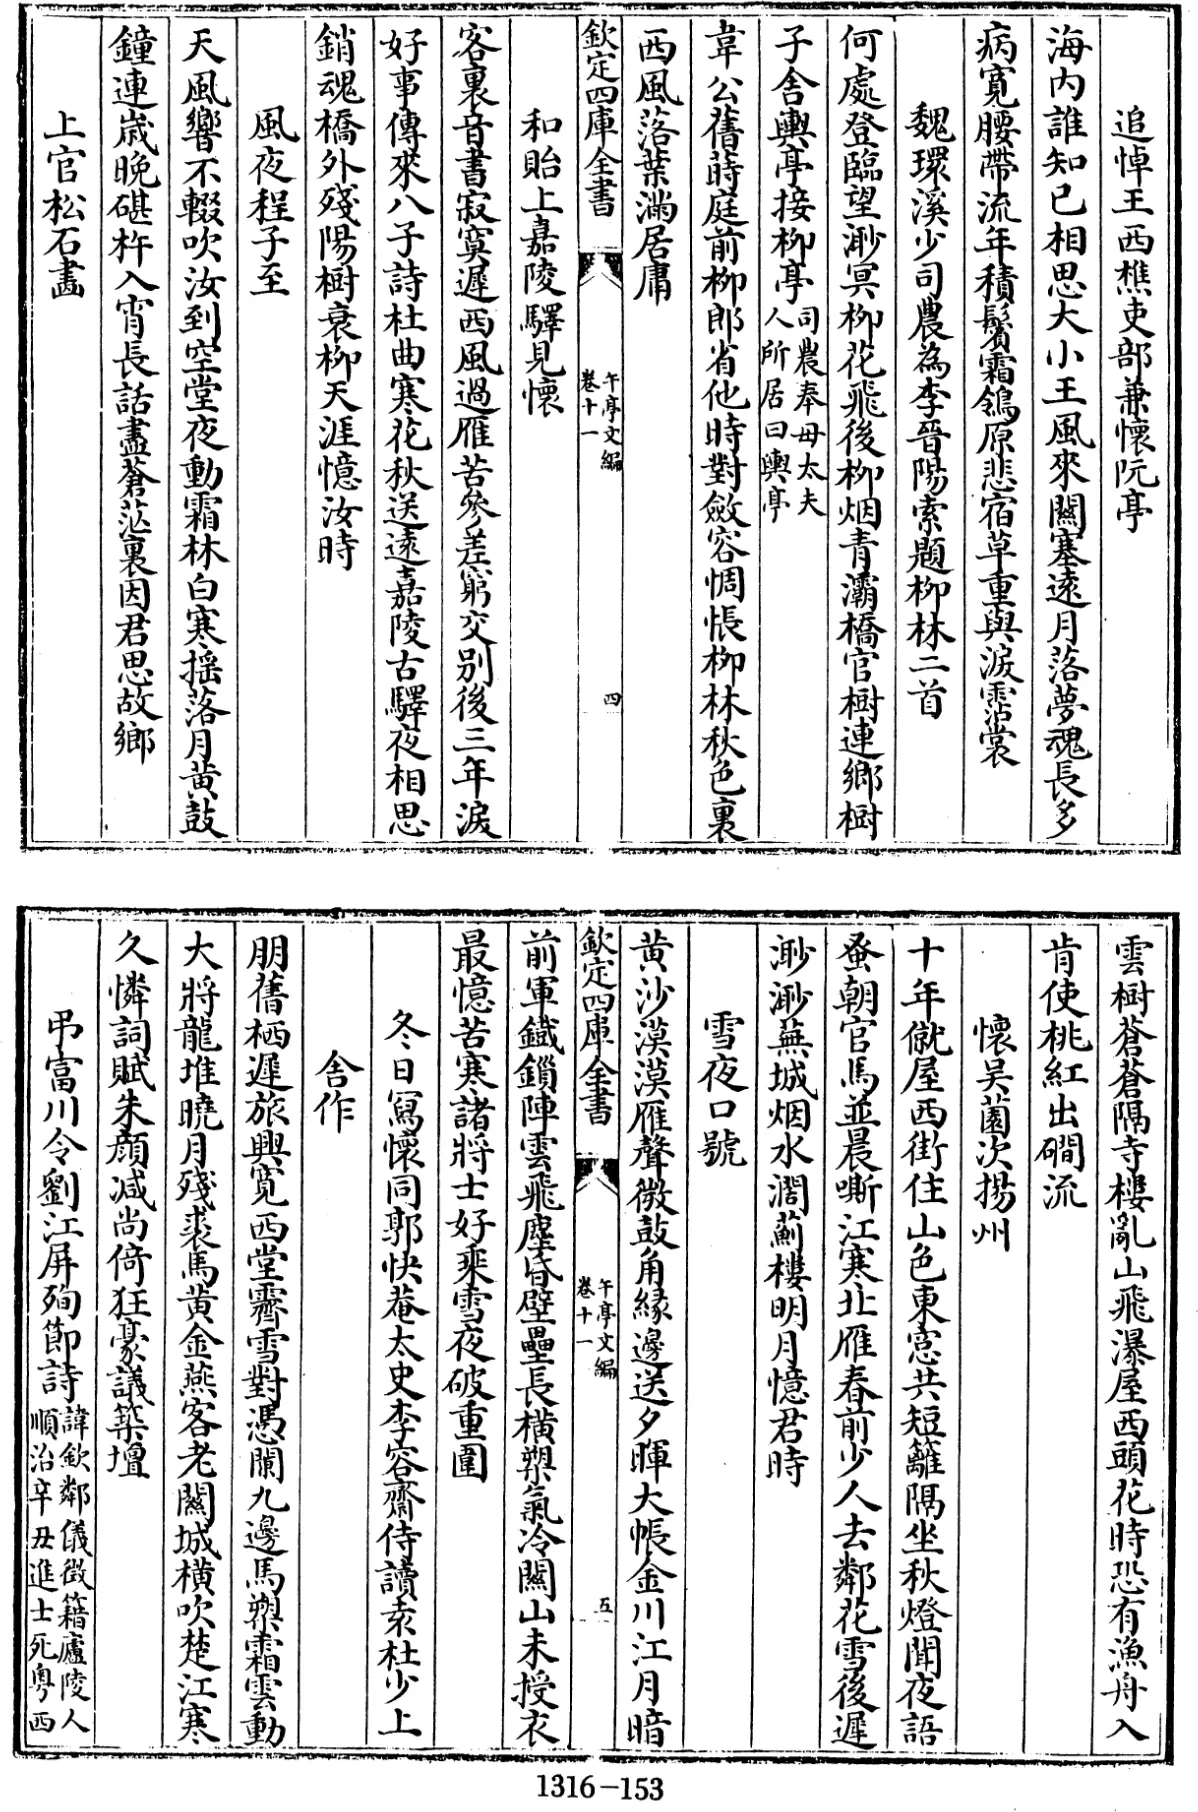 追悼王西樵吏部兼懷阮亭
海内誰知已相思大小王風來關塞遠月落夢魂長多
病寛腰帶流年積鬢霜鴒原悲宿草重與淚霑裳
魏環溪少司農為李晉陽索題柳林二首
何處登臨望渺冥柳花飛後柳烟青灞橋官樹連鄉樹
子舎輿亭接柳亭司農奉母太夫
人所居曰輿亭
韋公舊蒔庭前柳郎省他時對斂容惆悵柳林秋色裏
西風落葉滿居庸
欽定四庫全書
午亭文編
卷十一
四
和貽上嘉陵驛見懷
客裏音書寂寞遲西風過雁苦參差窮交别後三年淚
好事傳來八子詩杜曲寒花秋送遠嘉陵古驛夜相思
銷魂橋外殘陽樹衰柳天涯憶汝時
風夜程子至
天風響不輟吹汝到空堂夜動霜林白寒摇落月黄鼓
鐘連嵗晚碪杵入宵長話盡蒼茫裏因君思故鄉
上官松石畫
雲樹蒼蒼隔寺樓亂山飛瀑屋西頭花時恐有漁舟入
肯使桃紅出磵流
懷吴薗次揚州
十年僦屋西街住山色東窻共短籬隔坐秋燈聞夜語
蚤朝官馬並晨嘶江寒北雁春前少人去鄰花雪後遲
渺渺蕪城烟水濶薊樓明月憶君時
雪夜口號
黄沙漠漠雁聲微鼓角緣邊送夕暉大帳金川江月暗
欽定四庫全書
午亭文編
卷十一
五
前軍鐵鎖陣雲飛塵昏壁壘長横槊氣冷關山未授衣
最憶苦寒諸將士好乘雪夜破重圍
冬日寫懷同郭快菴太史李容齋侍讀索杜少上
舎作
朋舊栖遲旅興寛西堂霽雪對憑闌九邊馬槊霜雲動
大將龍堆曉月殘裘馬黄金燕客老關城横吹楚江寒
久憐詞賦朱顔减尚倚狂豪議築壇
弔富川令劉江屏殉節詩諱欽鄰儀徴籍廬陵人
順治辛丑進士死粤西
1316-153